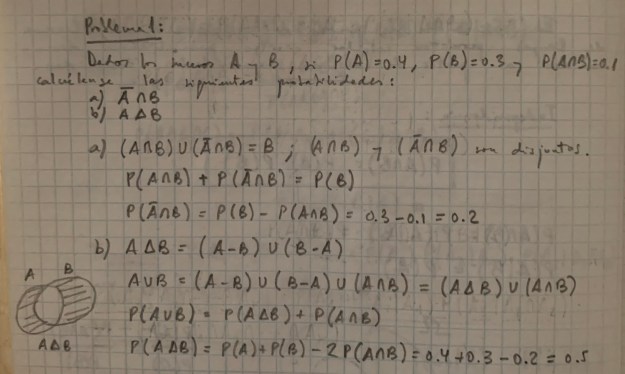 Problema 1:
Dados los sucesos A y B, si P(A)=0.4, P(B)=0.3 y P(A∩B)=0.1
calcúlense las siguientes probabilidades:
a) A̅∩B
b) A∆B
a) (A∩B)∪(A̅∩B)=B ; (A∩B) y (A̅∩B) son disjuntos.
P(A∩B)+P(A̅∩B)=P(B)
P(A̅∩B)=P(B)-P(A∩B)=0.3-0.1=0.2
b) A∆B=(A-B)∪(B-A)
A∪B=(A-B)∪(B-A)∪(A∩B)=(A∆B)∪(A∩B)
P(A∪B)=P(A∆B)+P(A∩B)
P(A∆B)=P(A)+P(B)-2P(A∩B)=0.4+0.3-0.2=0.5
A B
A∆B